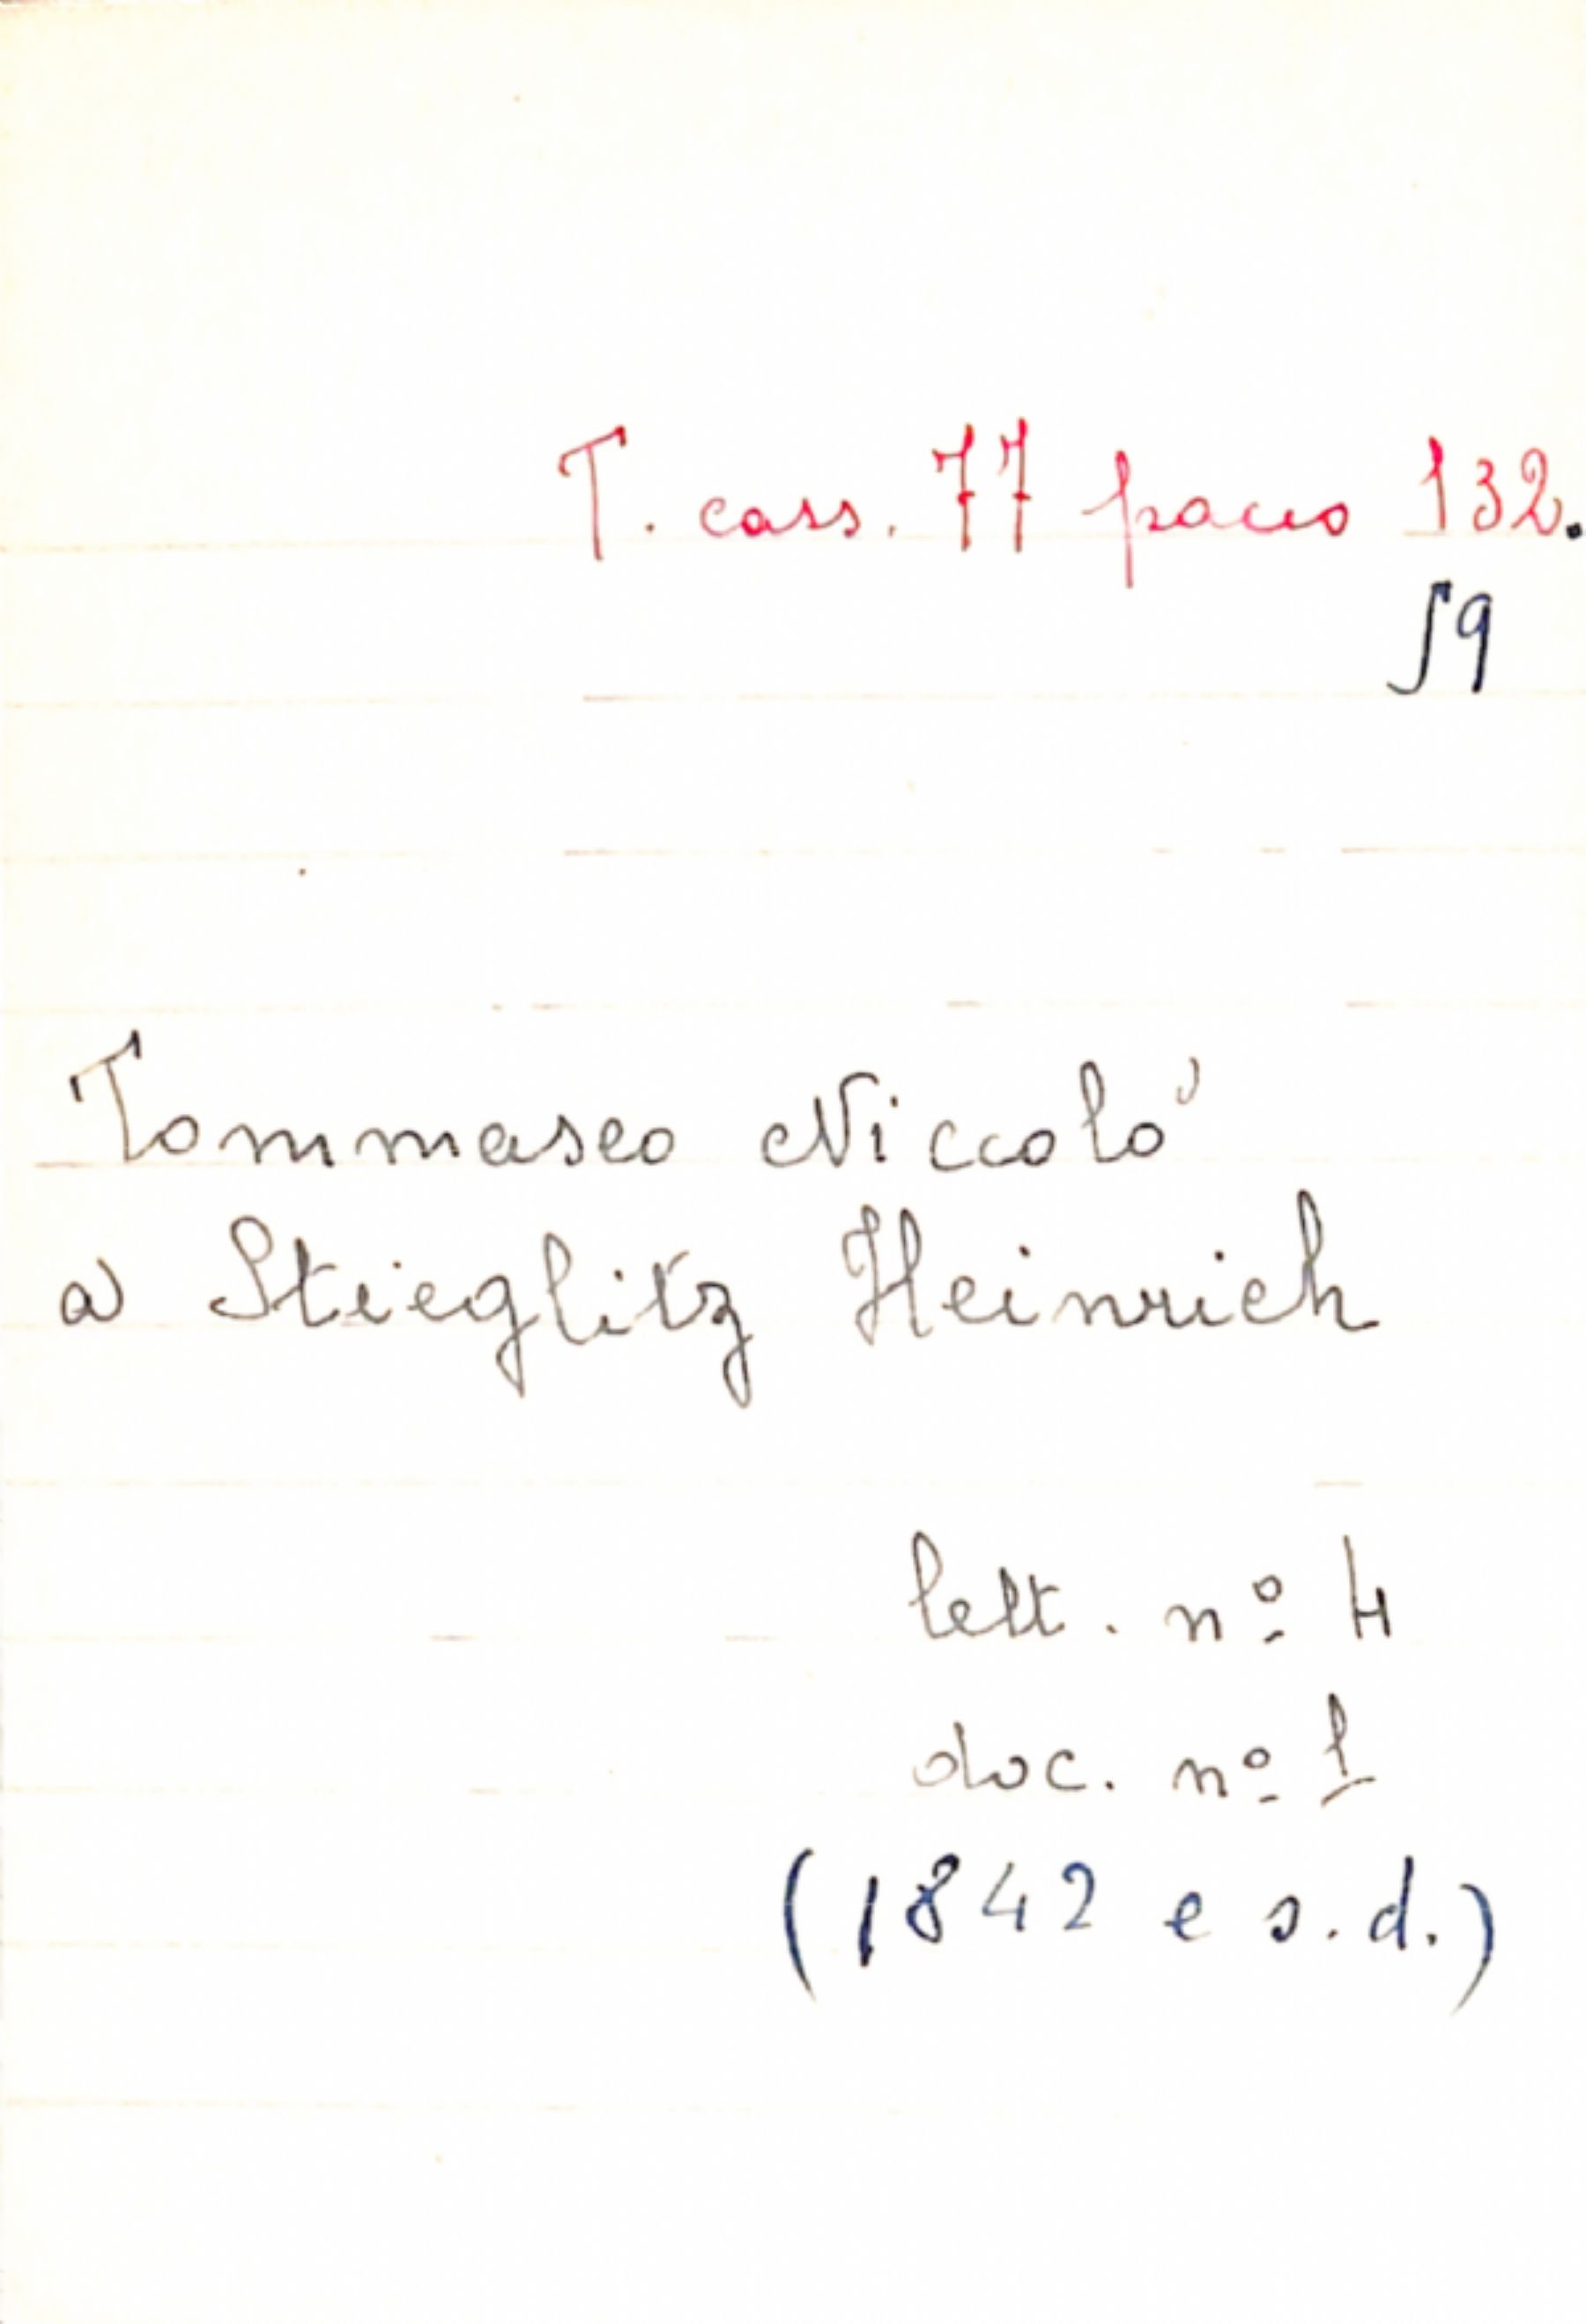 T. cass. 77 pacco 132.
59
Tommaseo Niccolò
a Stieglitz Heinrich
lett. nº 4
doc. nº 1
(1842 e s.d.)